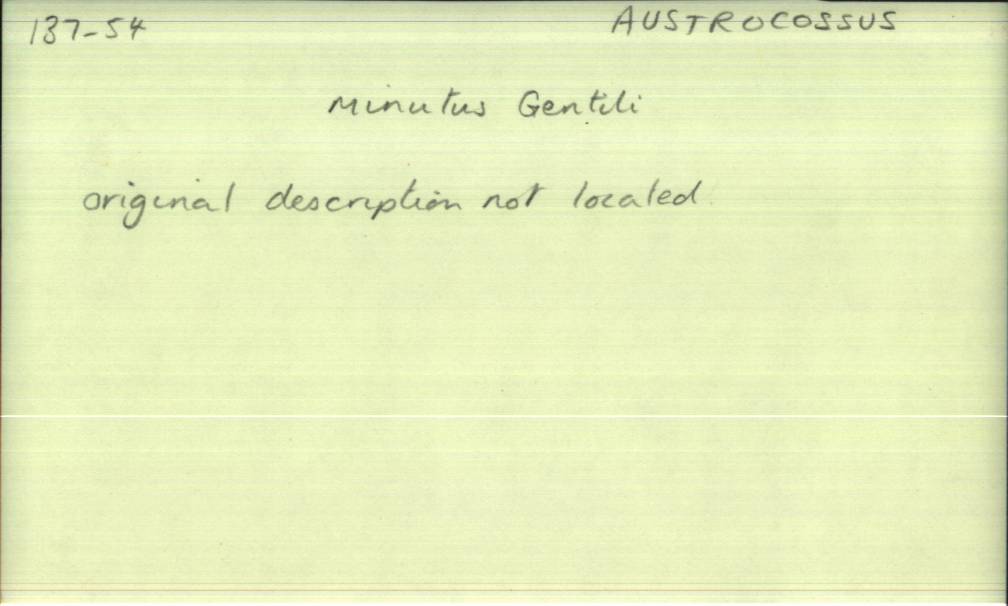 137-54 AUSTROCOSSUS
minutus Gentili
original description not located